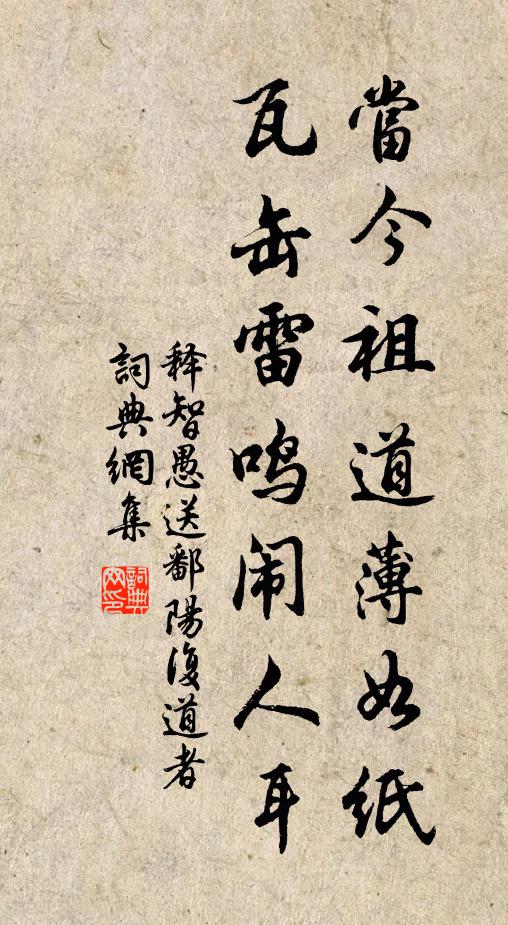 當今祖道薄如紙
瓦缶雷鳴闹人耳
释智愚送鄱陽復道者
詞典網集
詞典
网印